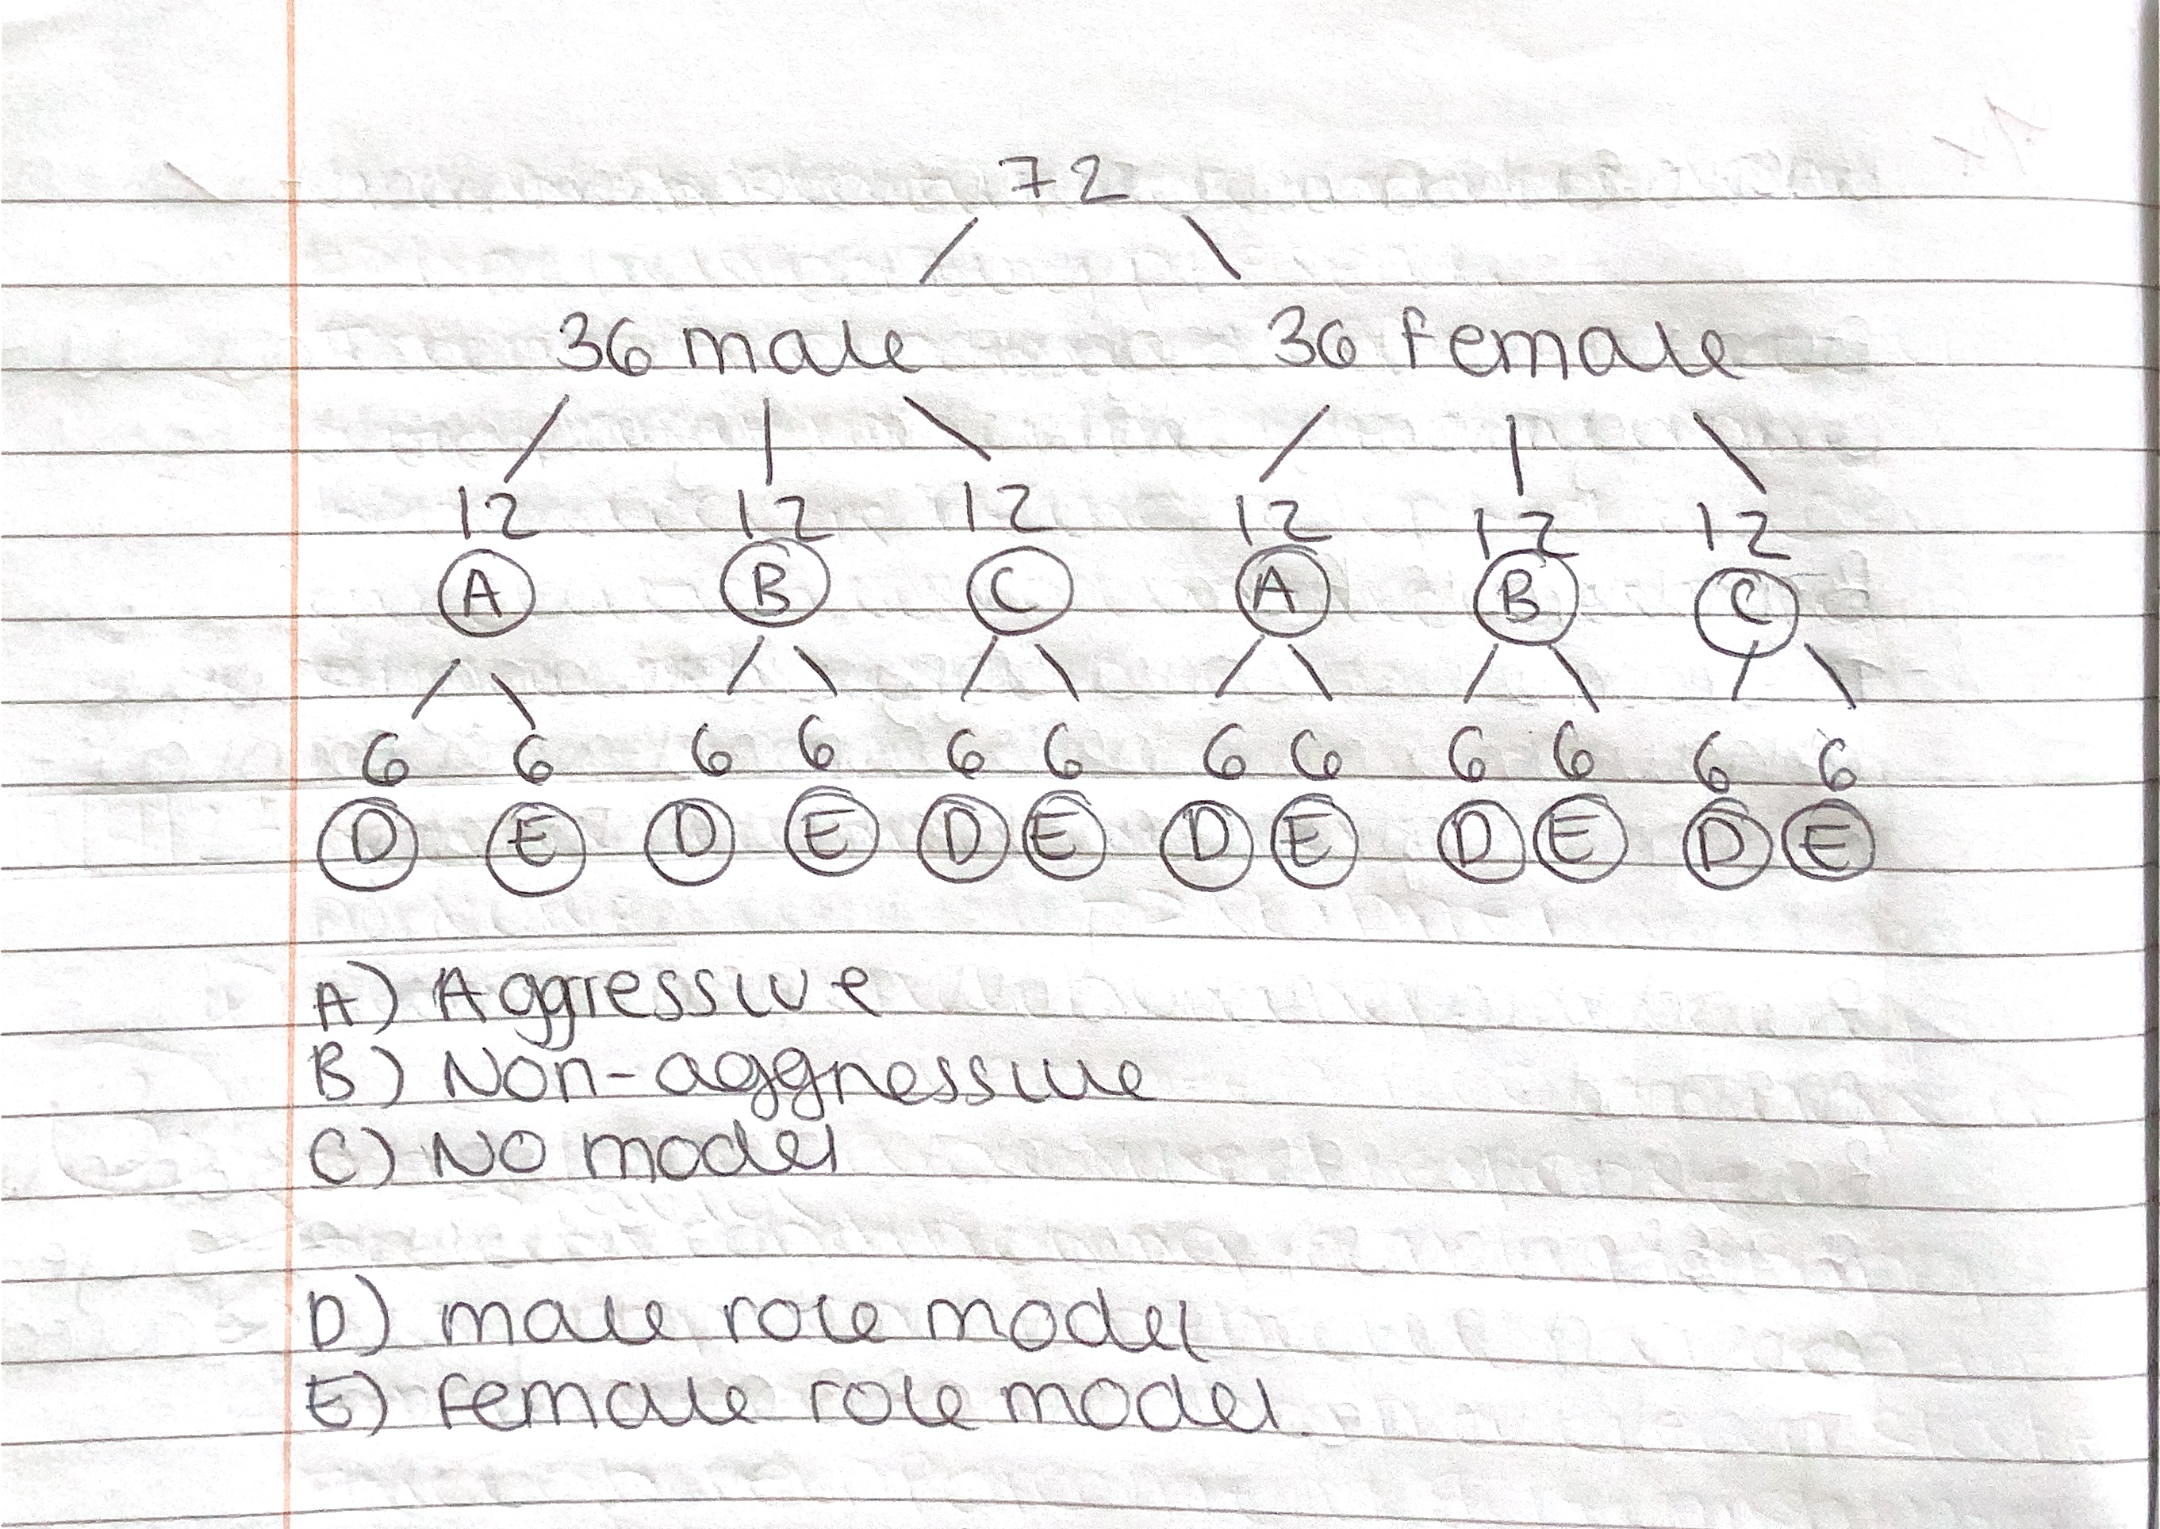 72
36 male 36 female
12 12 12 12 12 12
A B C A B C
6 6 6 6 6 6 6 6 6 6 6 6
D E D E D E D E D E D E
A) Aggressive
B) Non-aggressive
C) No model
D) male role model
E) female role model.